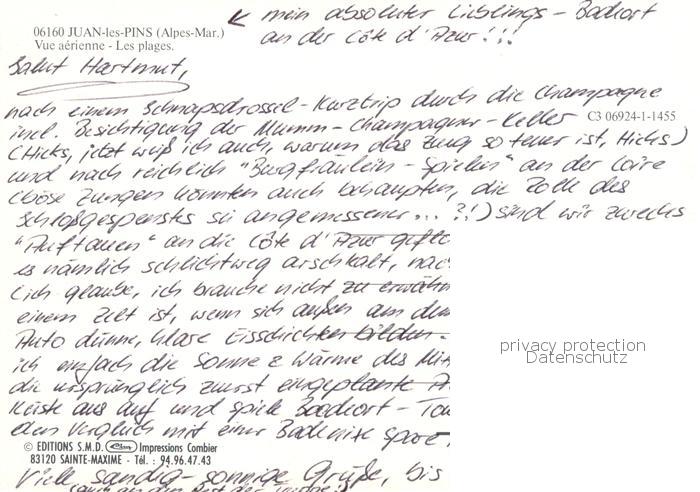 mein absoluter Lieblings-Badeort
an der Côte d'Azur!!!
06160 JUAN-les-PINS (Alpes-Mar.)
Vue aérienne - Les plages.
Salut Hartmut,
nach einem Schnapsdrossel-Kurztrip durch die Champagne
incl. Besichtigung der Mumm-Champagner-Keller
C3 06924-1-1455
(Hicks, jetzt weiß ich auch, warum das Zeug so teuer ist, Hicks)
und nach reichlich "Burgfräulein-Spielen" an der Loire
(böse Zungen könnten auch behaupten, die Rolle des
Schloßgespensts sei angemessener...?!) sind wir zwecks
"Auftauen" an die Côte d'Azur
es nämlich schlichtweg arschkalt,
(ich glaube, ich brauche nicht zu
einem Zelt ist, wenn sich außen am
Auto dünne, klare Eisschichten bilden.
ich einfach die Sonne & Wärme des
die ursprünglich zuerst eingeplante
Küste aus auf und spiele Badeort-
den Vergleich mit einer Badenixe
© EDITIONS S.M.D. Impressions Combier
83120 SAINTE-MAXIME - Tél. : 94.96.47.43
Viele sandig-sonnige Grüße, bis
privacy protection
Datenschutz